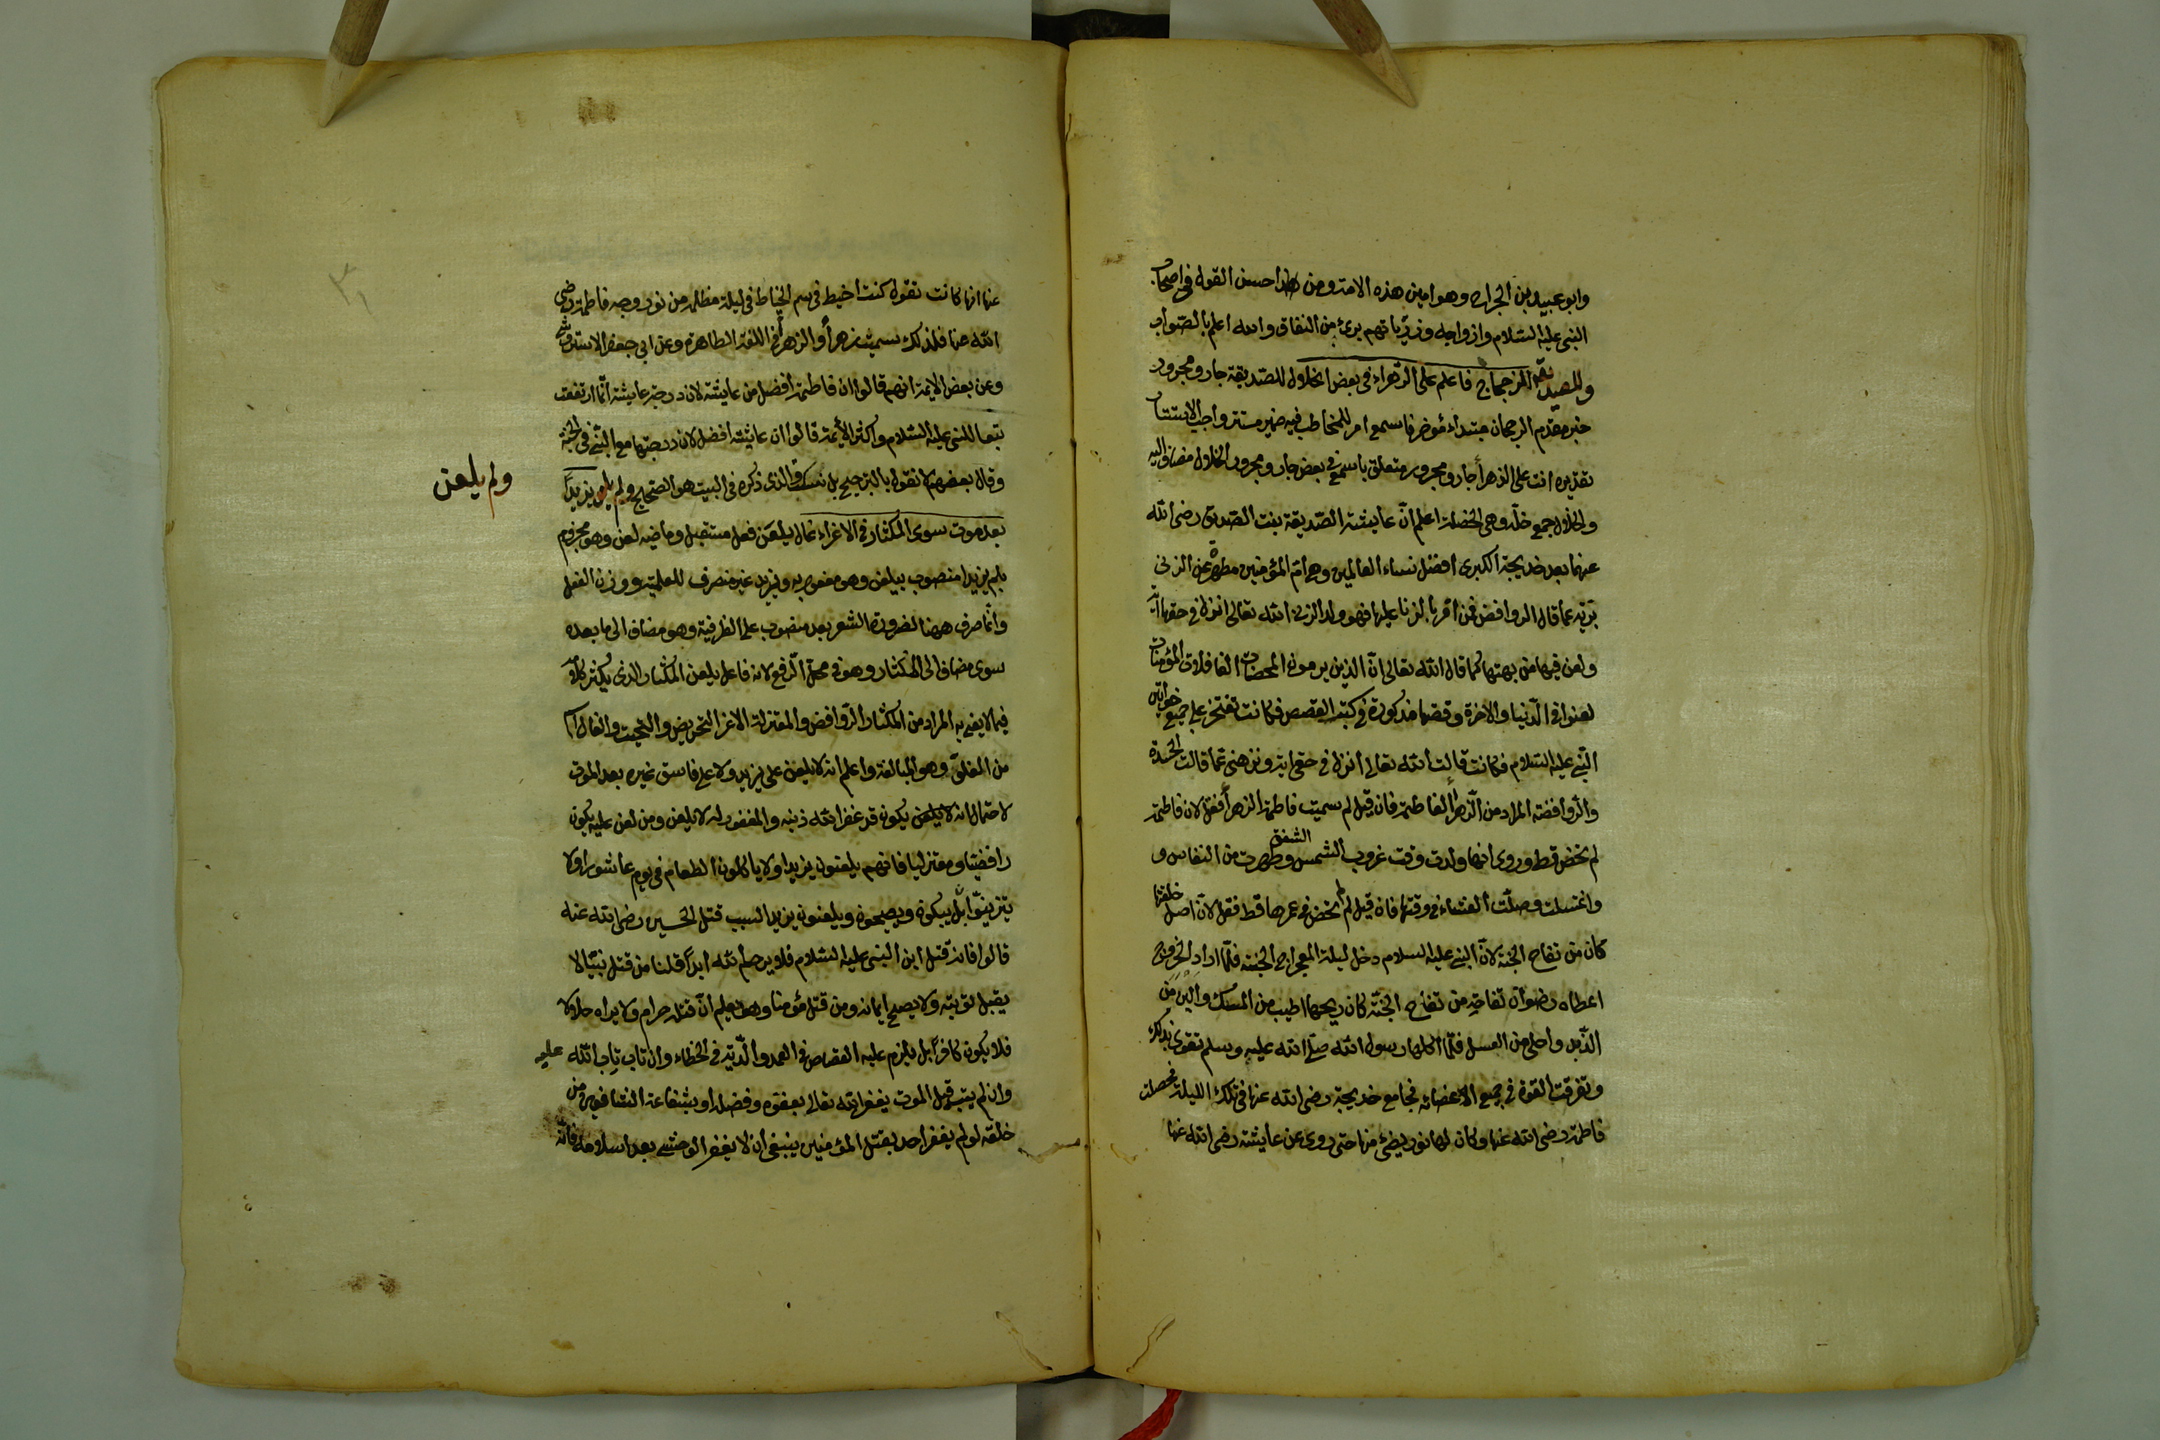 وابو عبيد بن الجراح وهو امين هذه الامة ومن هذا احسن القول في اصحاب
النبى عليه السلام وازواجه وذرياتهم برئ من النفاق والله اعلم بالصواب
وللصديقة الرجحان فاعلم على الزهراء فى بعض الخلال للصديقة جار ومجرور
خبر مقدم الرجحان مبتداء مؤخر فاسمع امر للمخاطب فيه ضمير مستتر واجب الاستتار
تقديره انت على الزهرأ جار ومجرور متعلق باسمع فى بعض جار ومجرور الخلال مضاف اليه
والخلال جمع خلة وهى الخصلة اعلم ان عايشة الصديقة بنت الصديق رضى الله
عنهما بعد خديجة الكبرى افضل نساء العالمين وهى ام المؤمنين مطهرة عن الزنى
برية عما قال الروافض فمن اقر بالزنا عليها فهو ولد الزنى الله تعالى انزل فى حقها آية
ولعن فيها من بهتها كما قال الله تعالى ان الذين يرمون المحصنات الغافلات المؤمنات
لعنوا فى الدنيا والاخرة وقصتها مذكورة فى كتب القصص فكانت تفتخر على جميع
النبى عليه السلام فكانت قالت الله تعالى انزل فى حقى اية ونزهنى عما قالت الحسدة
والروافضة المراد من الزهرأ الفاطمة فان قيل لم سميت فاطمة الزهرأ فقل لان فاطمة
لم تحض قط وروى انها ولدت وقت غروب الشمس الشفق وطهرت من النفاس و
واغتسلت وصلت العشاء فى وقتها فان قيل لم لم تحض فى عمرها قط فقل لان اصل خلقتها
كان من تفاح الجنة لان النبى عليه السلام دخل ليلة المعراج الجنة فلما اراد الخروج
اعطاه رضوان تفاحة من تفاح الجنة كان ريحها اطيب من المسك والين من
الزبد واحلى من العسل فلما اكلها رسول الله صلى الله عليه وسلم تقوى بذلك
وتفرقت القوة فى جميع الاعضائه فجامع خديجة رضى الله عنها فى تلك الليلة فحصلت
فاطمة رضى الله عنها وكان لها نور يضئ منها حتى روى عن عايشة رضى الله عنها
عنها انها كانت تقول كنت اخيط فى سم الخياط فى ليلة مظلمة من نور وجه فاطمة رضى
الله عنها فلذلك سميت زهرأ والزهرأ فى اللغة الطاهرة وعن ابى جعفر الاستروشنى
وعن بعض الايمة انهم قالوا ان فاطمة افضل من عايشة لان درجة عايشة انما ارتفعت
تبعا للنبى عليه السلام واكثر الأيمة قالوا ان عايشة افضل لان درجتها مع النبى فى الجنة
وقال بعضهم لا نقول بالترجيح بل نسكت والذى ذكره فى البيت هو الصحيح ولم يلعن يزيدا
ولم يلعن
بعد موت سوى المكثار فى الاغراء غال يلعن فعل مستقبل وماضيه لعن وهو مجزوم
بلم يزيدا منصوب بيلعن وهو مفعول به ويزيد غير منصرف للعلمية ووزن الفعل
وانما صرف ههنا لضرورة الشعر بعد منصوب على الظرفية وهو مضاف الى ما بعده
سوى مضاف الى المكثار وهو فى محل الرفع لانه فاعل يلعن المكثار الذى يكثر كلامه
فيما لا يعنى به المراد من المكثار الروافض والمعتزلة الاغرا التحريض والتحثيث والغال
من الغلو وهو المبالغة واعلم انه لا يلعن على يزيد ولا على فاسق غيره بعد الموت
لاحتمال انه لا يلعن يكون قد غفر الله ذنبه والمغفور له لا يلعن ومن لعن عليه يكون
رافضيا ومعتزليا فانهم يلعنون يزيدا ولا ياكلون الطعام فى يوم عاشورا ولا
يتزينوا بل يبكون ويصيحون ويلعنون يزيدا لسبب قتل الحسين رضى الله عنه
قالوا فانه قتل ابن النبى عليه السلام فلا يرحم الله ابدا قلنا من قتل نبيا لا
يقبل توبته ولا يصلح ايمانه ومن قتل مؤمنا وهو يعلم ان قتله حرام ولا يراه حلالا
فلا يكون كافرا بل يلزم عليه القصاص فى العمد والدية فى الخطاء وان تاب تاب الله عليه
وان لم يتب قبل الموت يغفر الله تعالى بعفوه وفضله او بشفاعة الشافعين من
خلقه لو لم يغفر احد بقتل المؤمنين ينبغى ان لا يغفر الوحشى بعد اسلامه فانه